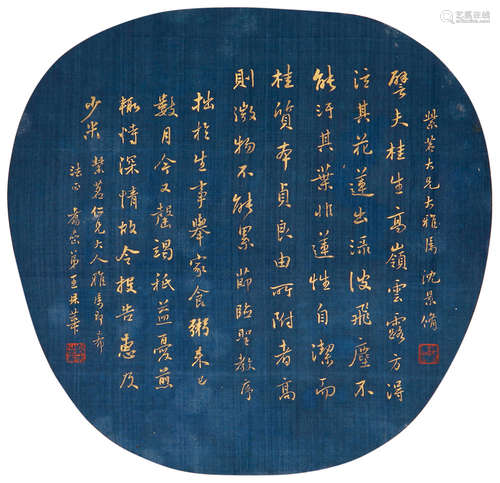 紫茗大兄大雅屬 沈景脩
譬夫桂生高嶺雲露方得
泫其花蓮出淥波飛塵不
能汙其葉非蓮性自潔而
桂質本貞良由所附者高
則微物不能累 節臨聖教序
拙於生事舉家食粥來已
數月今又罄竭秪益憂煎
輒恃深情故令投告惠及
少米 紫茗仁兄大人雅屬即希
法正